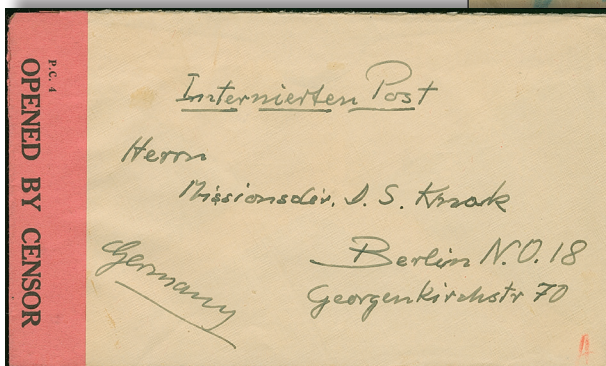 P.C. 4
OPENED BY CENSOR
Internierten Post
Herrn
Missionsdir. D. S. Knak
Berlin N.O. 18
Georgenkirchstr 70
Germany